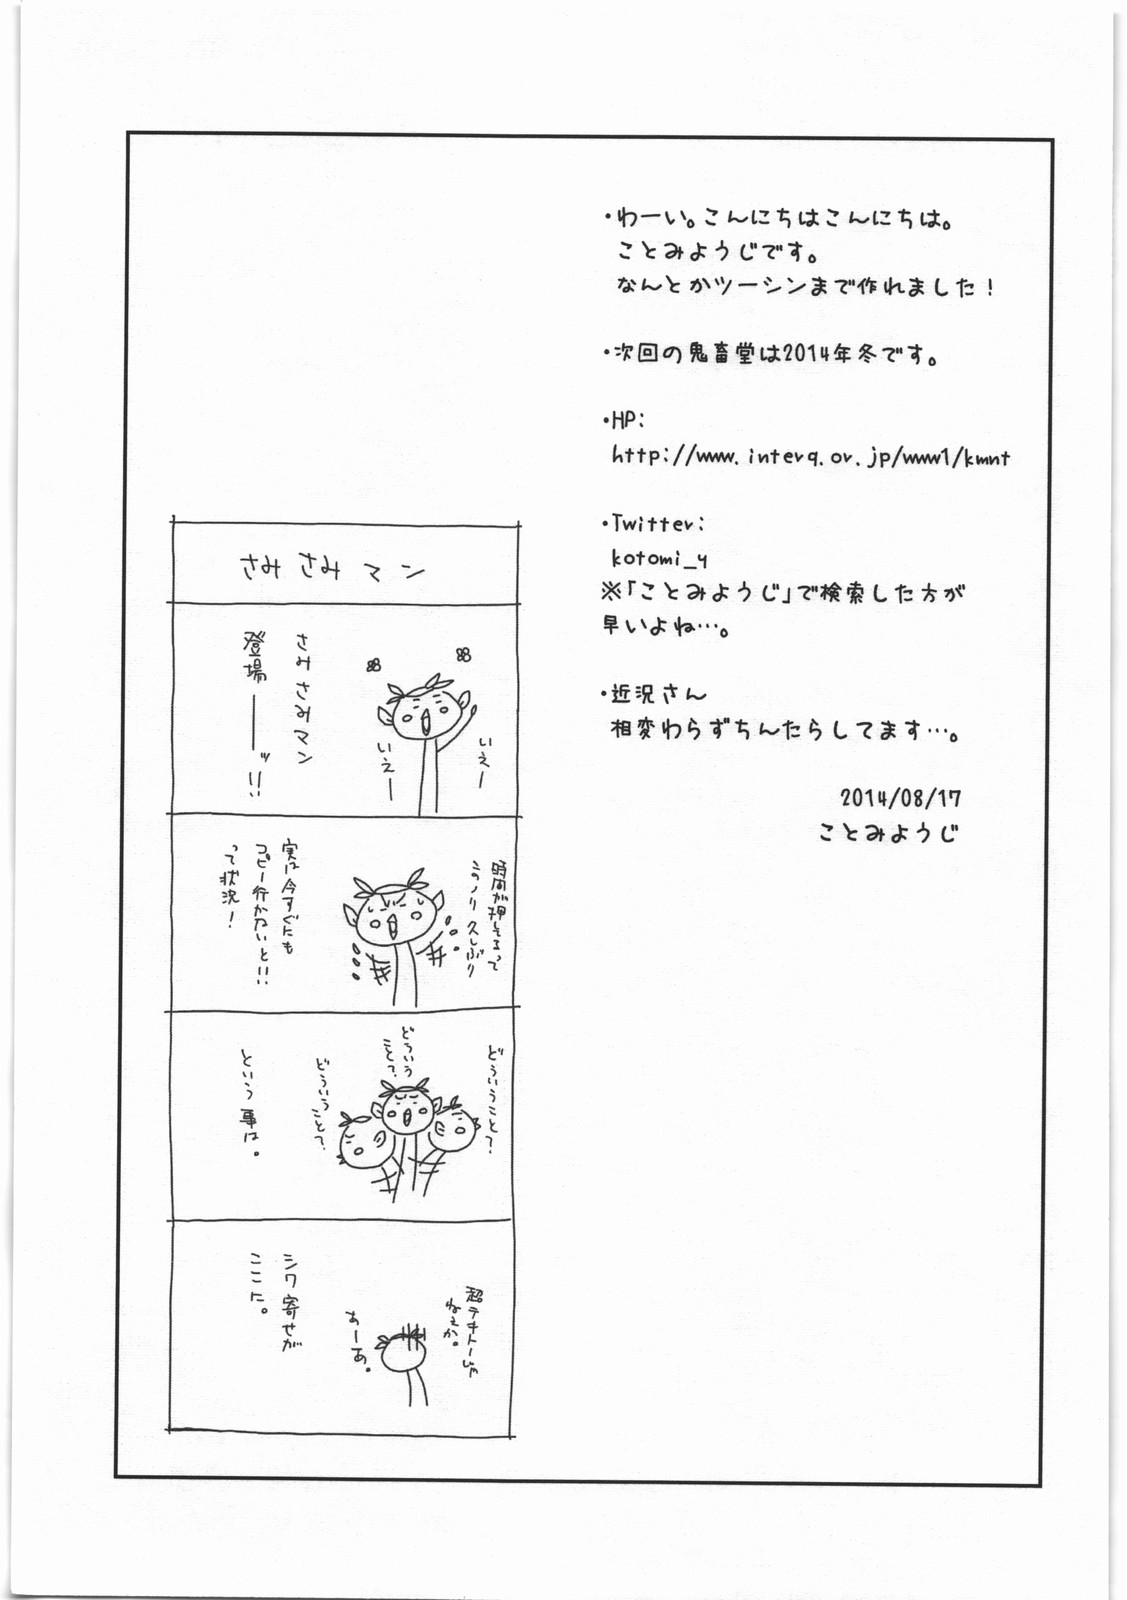 ・わーい。こんにちはこんにちは。
ことみようじです。
なんとかツーシンまで作れました！
・次回の鬼畜堂は2014年冬です。
・HP:
http://www.interq.or.jp/www1/kmnt
・Twitter:
kotomi_y
※「ことみようじ」で検索した方が
早いよね…。
・近況さん
相変わらずちんたらしてます…。
2014/08/17
ことみようじ
さみさみマン
いえー
いえー
さみさみマン
登場――ッ!!
時間が押してるって
このノリ久しぶり
実は今すぐにも
コピー行かないと!!
って状況！
どういうこと？
どういう
こと？
どういうこと？
という事は。
超テキトーじゃ
ねぇか。
あーあ。
シワ寄せが
ここに。